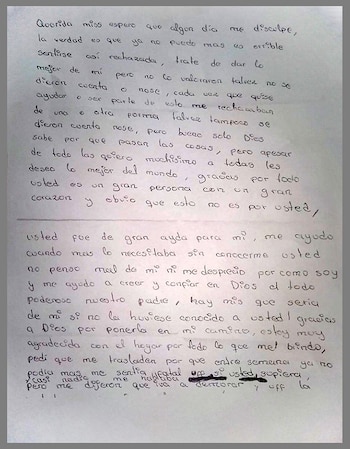 Querida miss espero que algun dia me disculpe,
la verdad es que ya no puedo mas es orrible
sentirse asi rechazada, trate de dar lo
mejor de mi pero no lo valoraron talvez no se
dieron cuenta o nose, cada vez que quise
ayudar o ser parte de esto me rechazaban
de una u otra forma talvez tampoco se
dieron cuenta nose, pero bueno solo Dios
sabe por que pasan las cosas, pero apesar
de todo las quiero muchisimo a todas les
deseo lo mejor del mundo, gracias por todo
usted es un gran persona con un gran
corazon y obvio que esto no es por usted,
usted fue de gran ayda para mi, me ayudo
cuando mas lo necesitaba sin conocerme usted
no penso mal de mi ni me desprecio por como soy
y me ayudo a creer y confiar en Dios el todo
poderoso nuestro padre, hay mis que seria
de mi si no la huviese conocido a usted! gracias
a Dios por ponerla en mi camino, estoy muy
agradecida con el hogar por todo lo que me brindo,
pedi que me trasladen por que entre semana ya no
podia mas me sentia fatal uff si usted supiera,
casi nadie me hablaba
pero me dijeron que iva a demorar y uff la